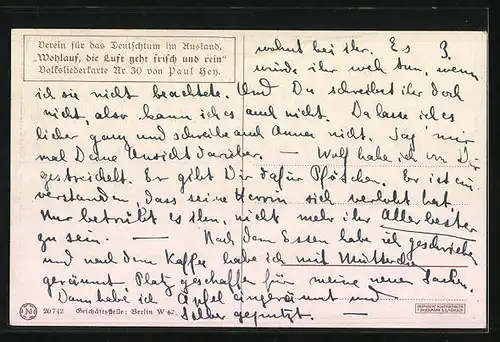 Verein für das Deutschtum im Ausland.
„Wohlauf, die Luft geht frisch und rein“
Volksliederkarte Nr. 30 von Paul Hey.
wohnt bei ihr. Es 3.
würde ihr weh tun, wenn
ich sie nicht beachtete. Und Du schreibst ihr doch
nicht, also kann ich es auch nicht. Da lasse ich es
lieber ganz und schreibe auch Annen nicht. Sag' mir
mal Deine Ansicht darüber. — Wolf habe ich von Dir
gestreichelt. Er gibt Dir dafür Pfötchen. Er ist ein-
verstanden, dass seine Herrin sich verlobt hat.
Nur betrübt es ihn, nicht mehr ihr Allerbester
zu sein. — Nach dem Essen habe ich geschrieben
und nach dem Kaffee habe ich mit Mütterchen
geräumt, Platz geschaffen für meine neuen Sachen.
Dann habe ich Äpfel eingeräumt und
selber geputzt. —
20742 Geschäftsstelle: Berlin W 62.